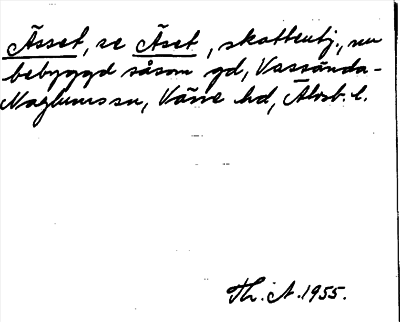 Ässet, se Äset, skatteutj., nu
bebyggd såsom gd, Vassända-
Naglums sn, Väne hd, Älvsb. l.
Th. A. 1955.